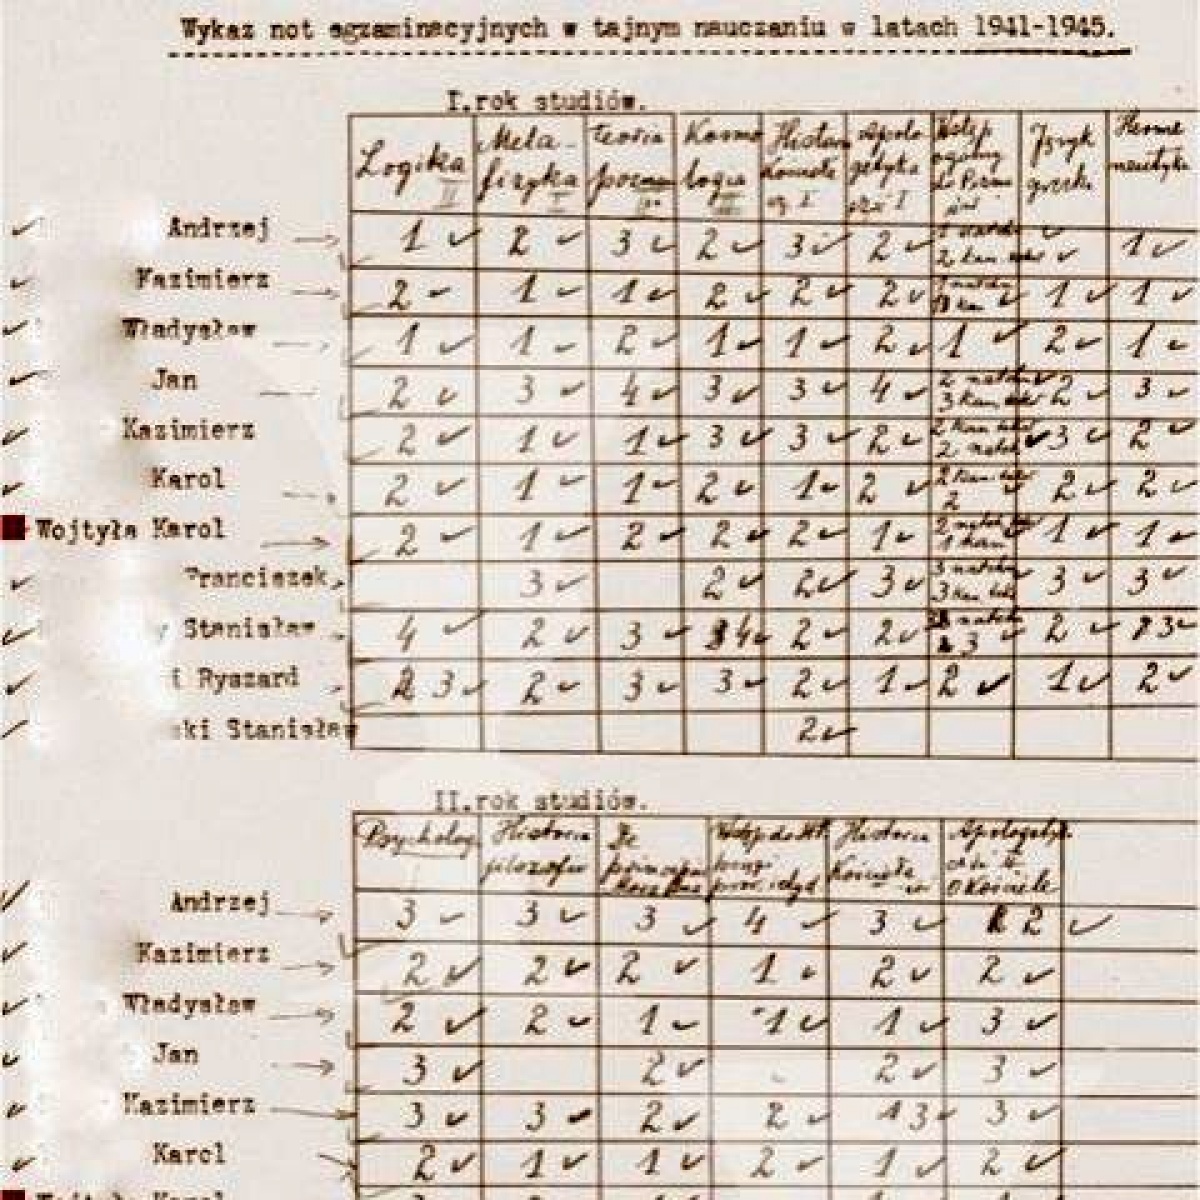 Wykaz not egzaminacyjnych w tajnym nauczaniu w latach 1941-1945.
I.rok studiów.
Logika II Meta-fizyka I Teoria pozn Kosmo logia III Histor Kościoła cz. I Apolo getyka część I Wstęp ogólny do Pisma św Język grecki Herme neutyka
Andrzej 1 2 3 2 3 2 2 1
Kazimierz 2 1 1 2 2 2 1 1
Władysław 1 1 2 1 1 2 1 2 1
Jan 2 3 4 3 3 4 2 3 2 3
Kazimierz 2 1 1 3 3 2 2 2 3 2
Karol 2 1 1 2 1 2 2 2 2 2
Wojtyła Karol 2 1 2 2 2 1 2 1 1 1
Franciszek 3 2 2 3 3 3 3 3
y Stanisław 4 2 3 4 2 2 3 2 3
i Ryszard 3 2 3 3 2 1 2 1 2
ski Stanisław 2
II.rok studiów.
Psycholog Historia filozofii De Historia Kościoła Apologetyk O Kościele
Andrzej 3 3 3 4 3 2
Kazimierz 2 2 2 1 2 2
Władysław 2 2 1 1 1 3
Jan 3 2 2 3
Kazimierz 3 3 2 2 3 3
Karol 2 1 1 2 1 2
Wojtyła Karol